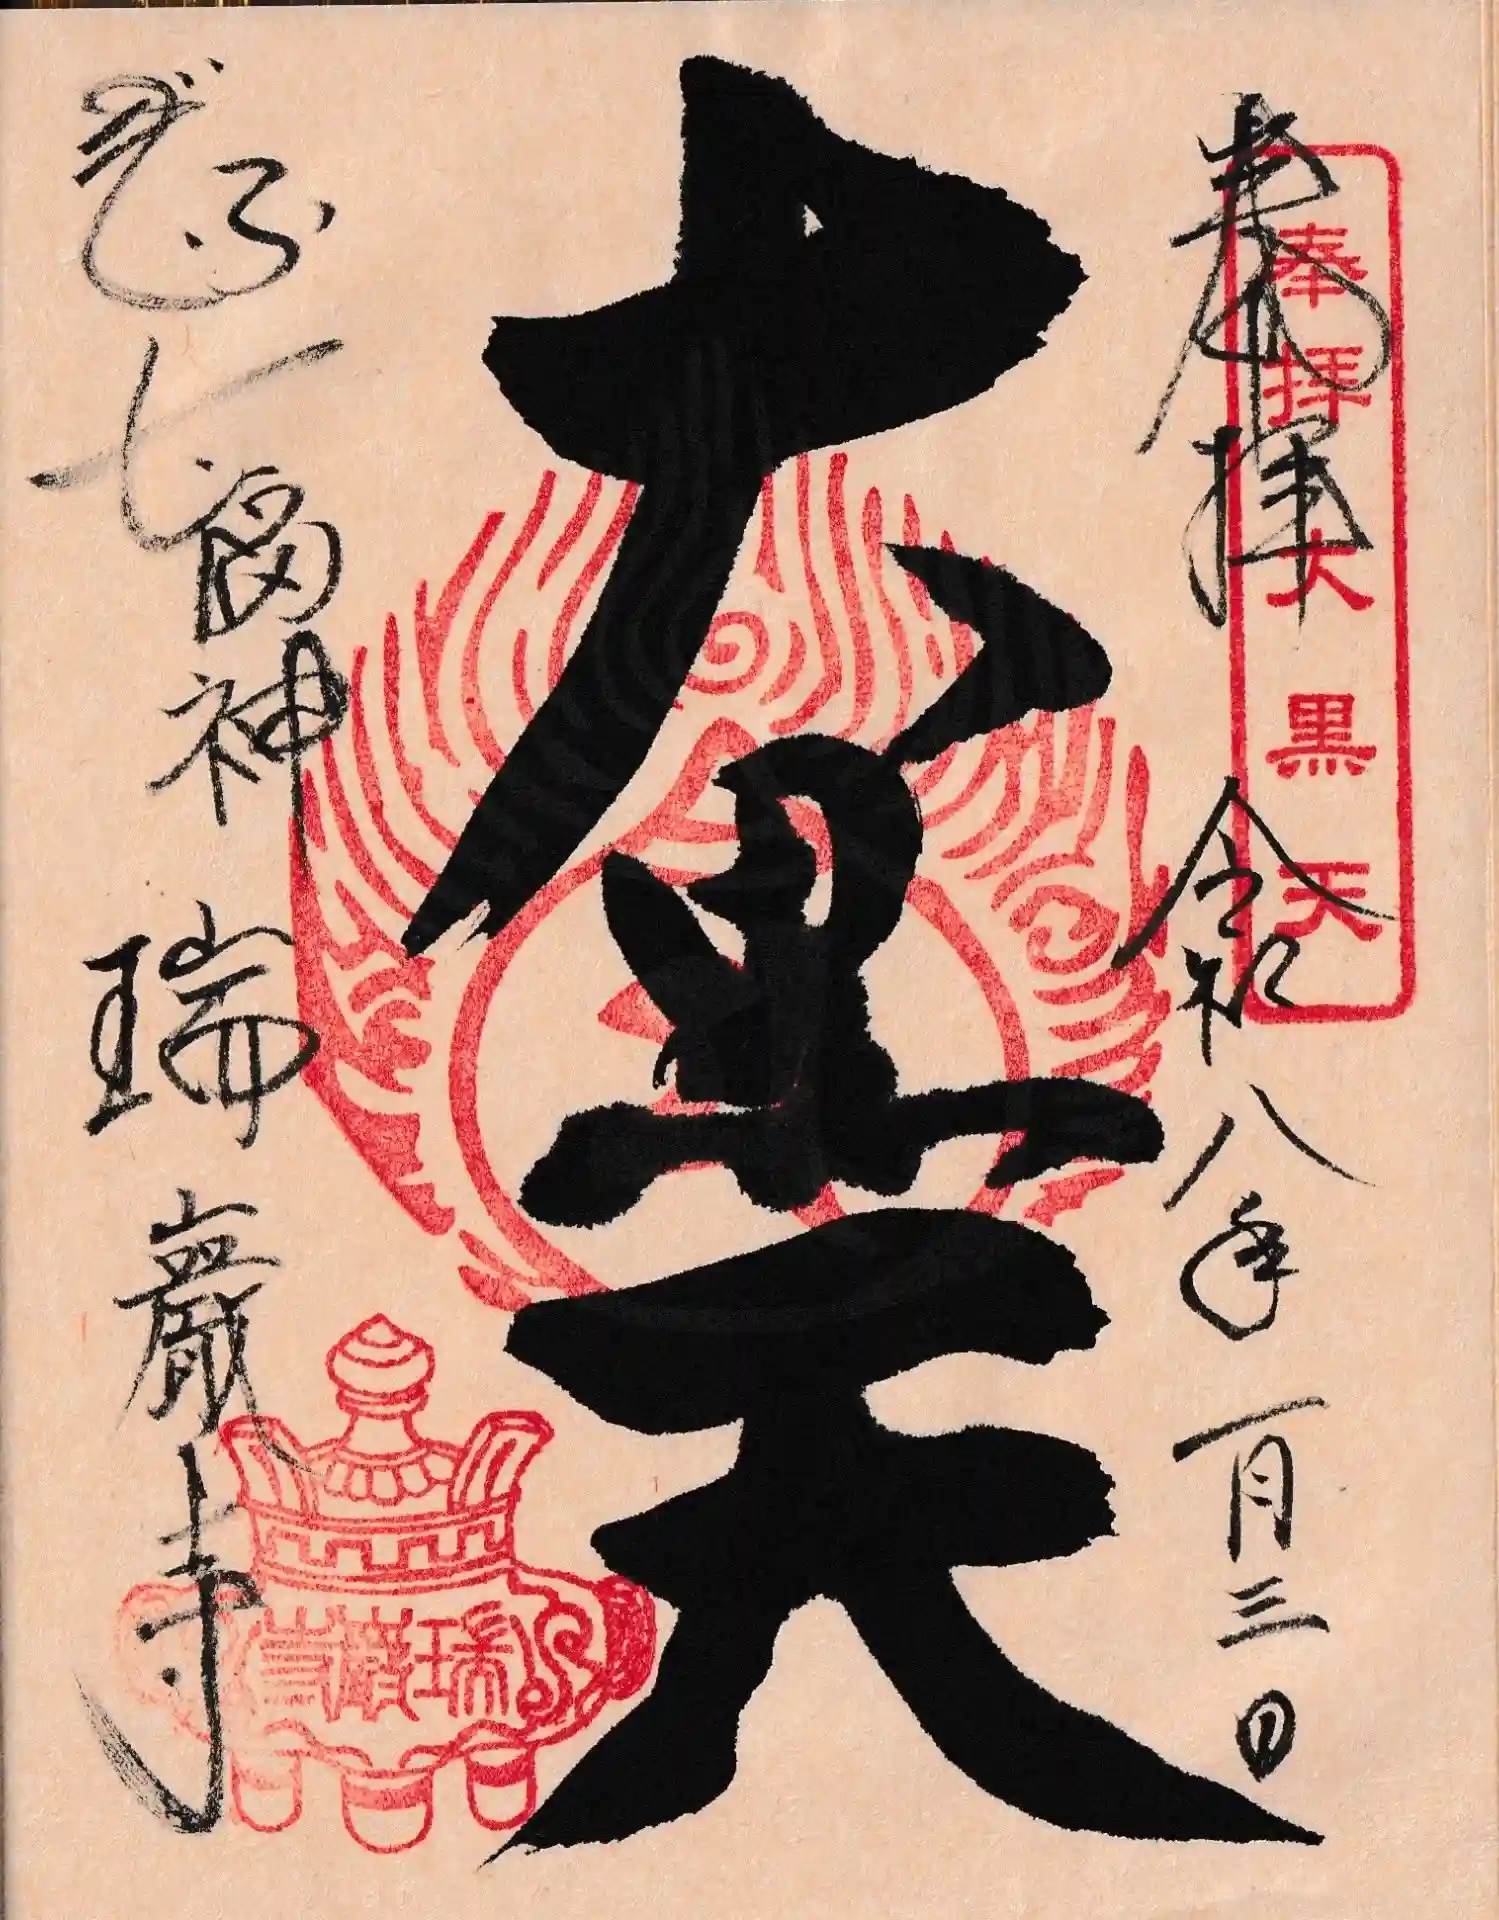 奉拝
令和八年一月三日
奉拝 大黒天
大黒天
ぎふ七福神
瑞巖寺
瑞巖寺